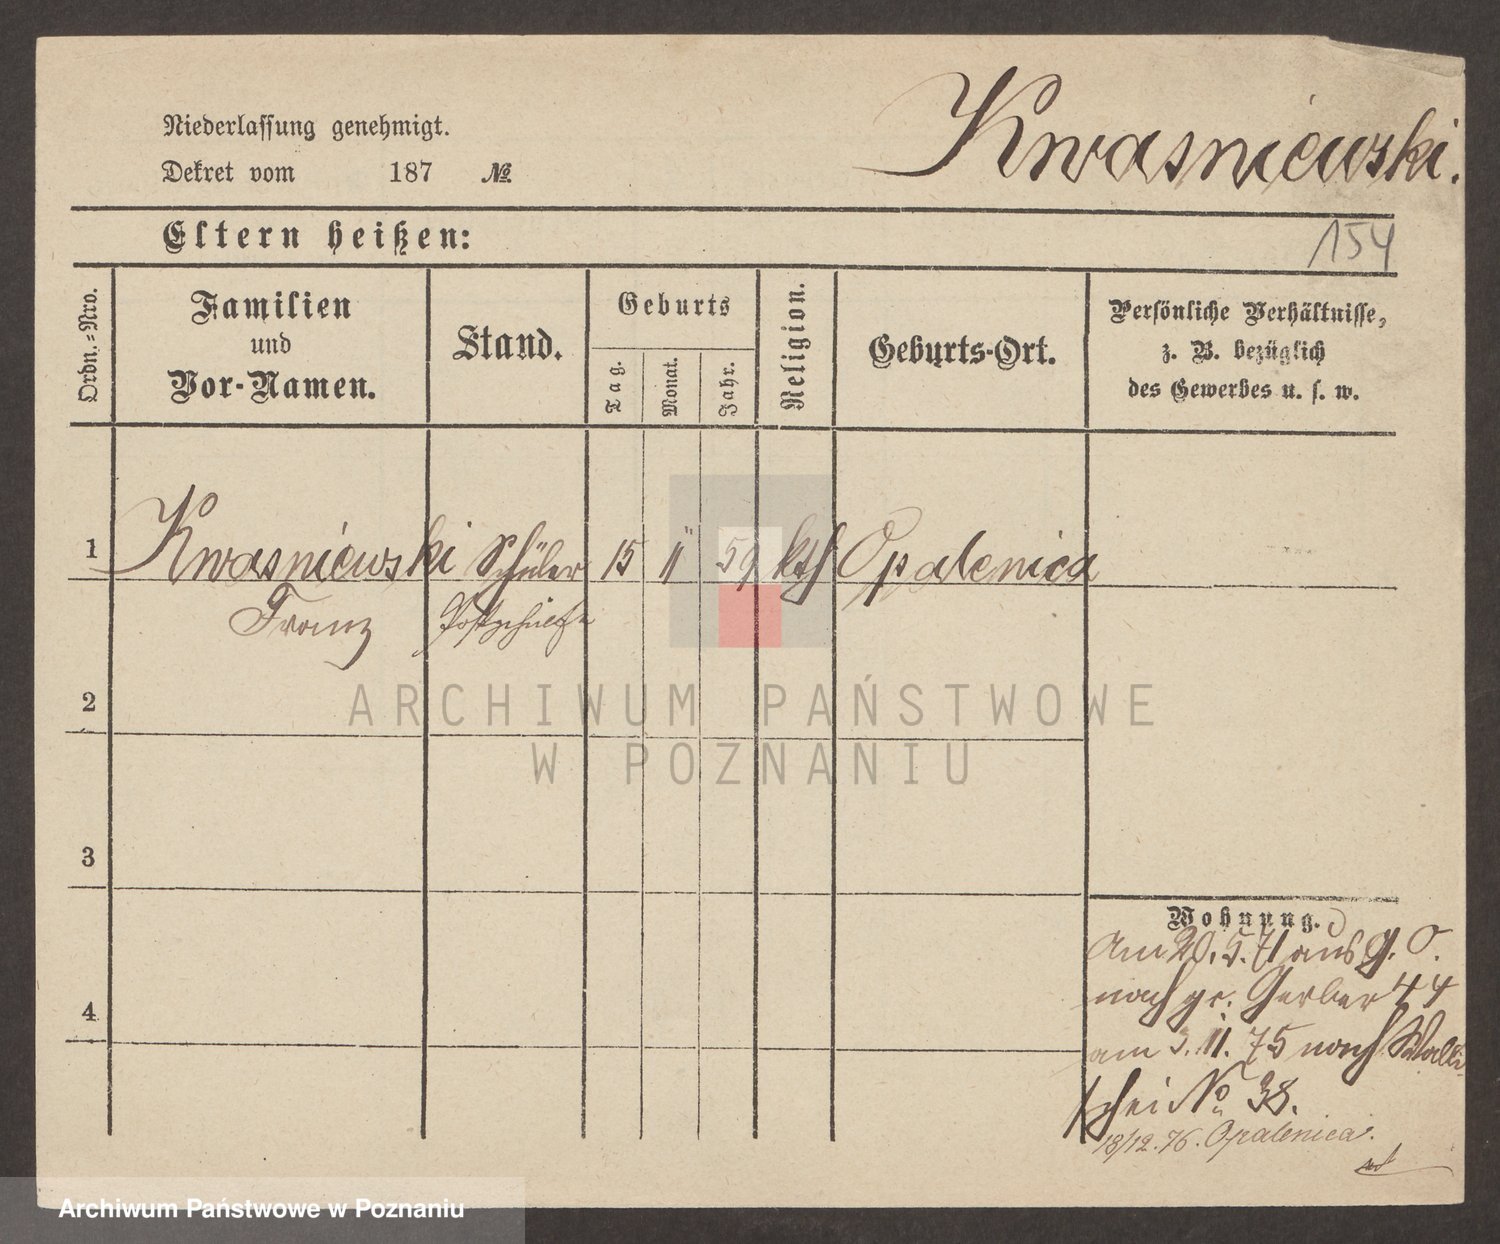 Kwasniewski.
Niederlassung genehmigt.
Dekret vom 187 №
154
Eltern heißen:
Ordn.-Nro.
Familien
und
Vor-Namen.
Stand.
Geburts
Tag.
Monat.
Jahr.
Religion.
Geburts-Ort.
Persönliche Verhältnisse,
z. B. bezüglich
des Gewerbes u. s. w.
1 Kwasniewski Schüler 15 11 59 kth Opalenica
Franz
2
3
4
Wohnung.
Am 20.5.71 aus g. O.
nach gr. Gerber 44
am 3.11.75 nach Walli-
schei No 38.
18/12.76. Opalenica.
ARCHIWUM PAŃSTWOWE
W POZNANIU
Archiwum Państwowe w Poznaniu